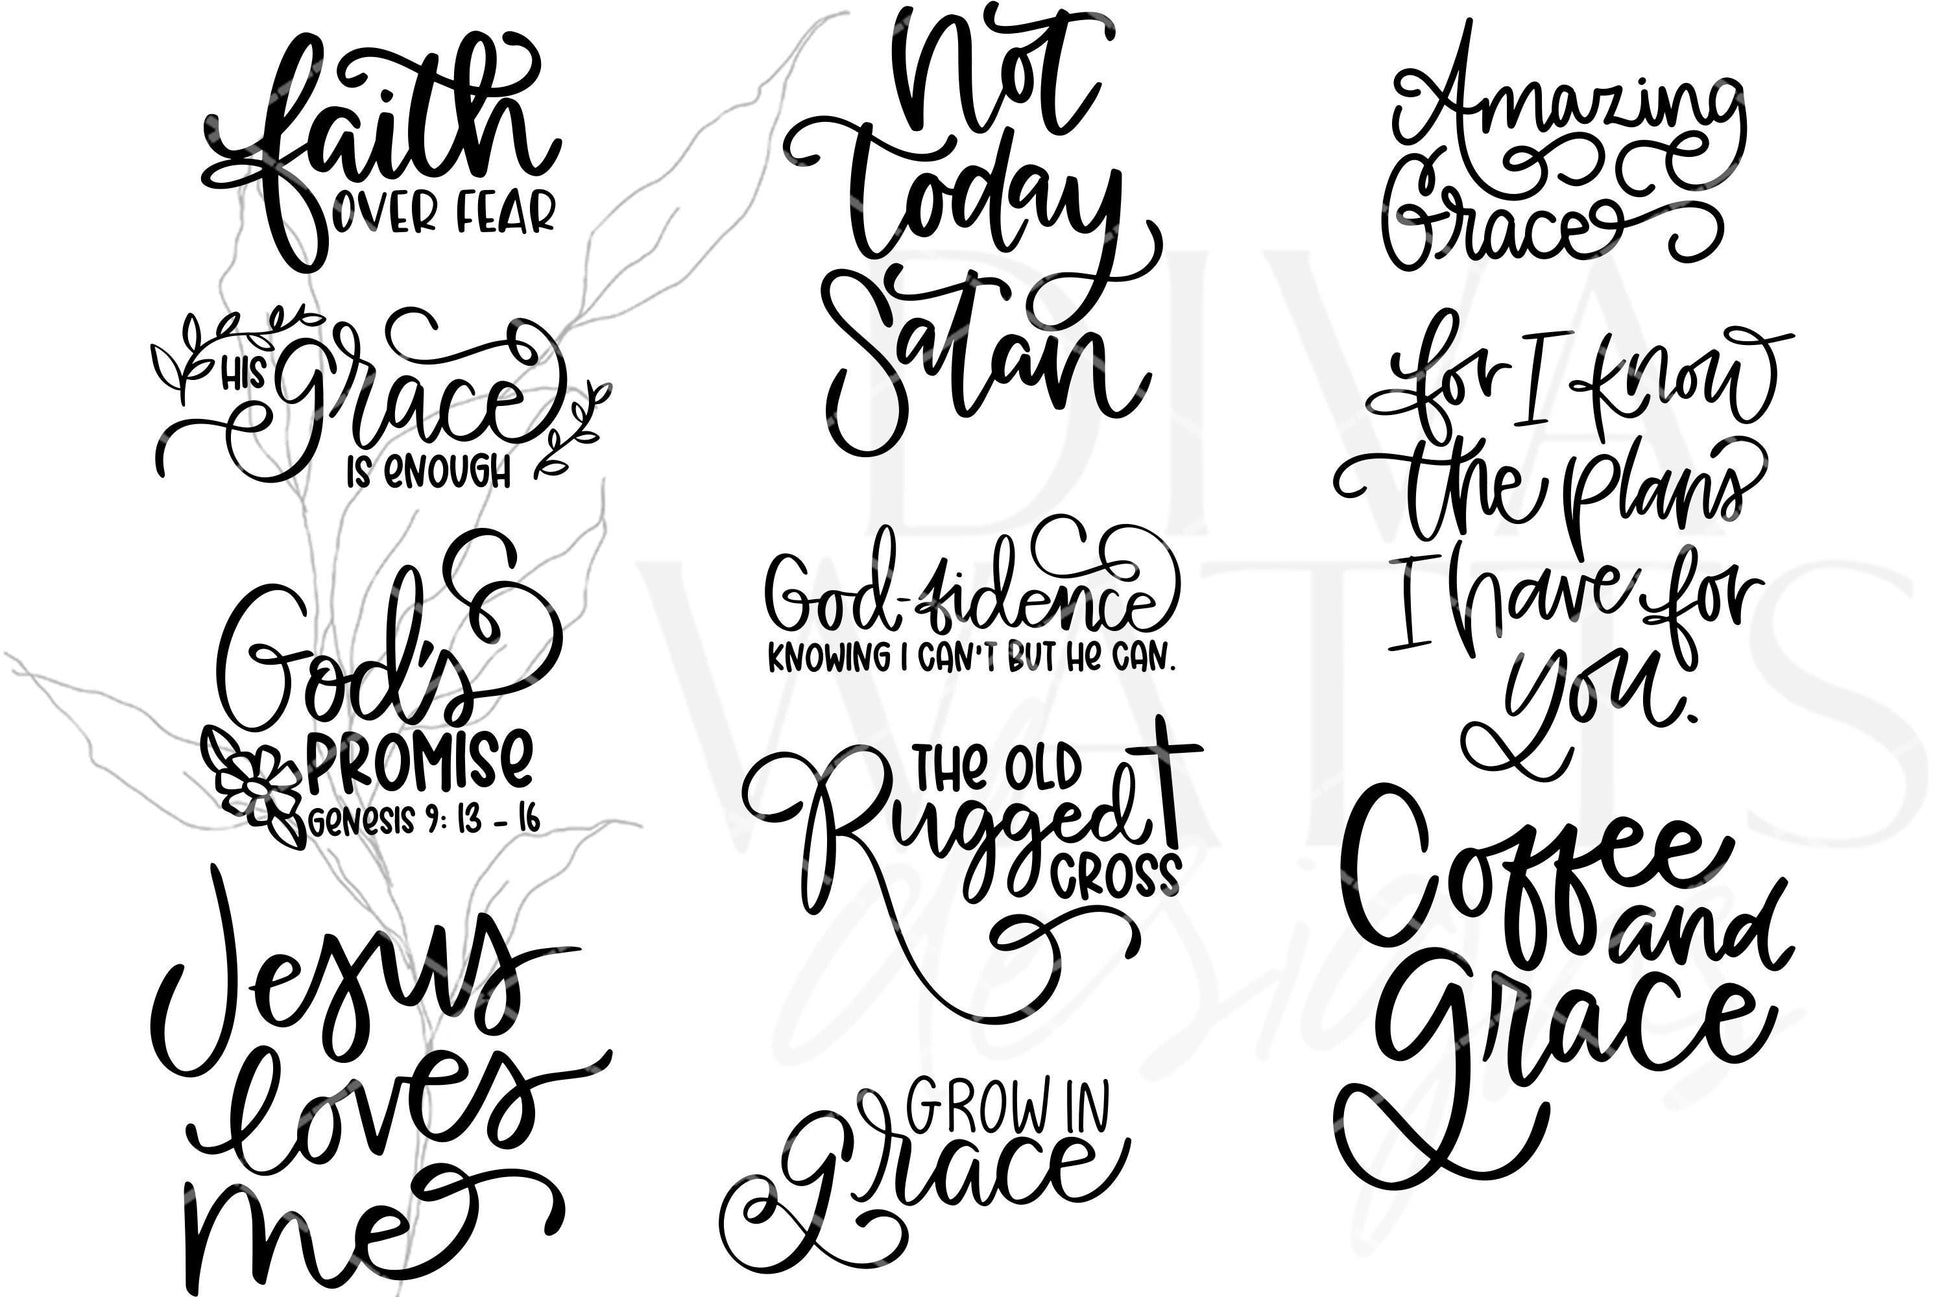 faith
OVER FEAR
HIS grace
IS ENOUGH
God's
PROMISE
GENESIS 9: 13 - 16
Jesus
loves
me
Not
Today
Satan
God-fidence
KNOWING I CAN'T BUT HE CAN.
THE OLD
Rugged
CROSS
GROW IN
grace
Amazing
Grace
for I know
the plans
I have for
you.
Coffee
and
grace
DIVA
WATTS
designs